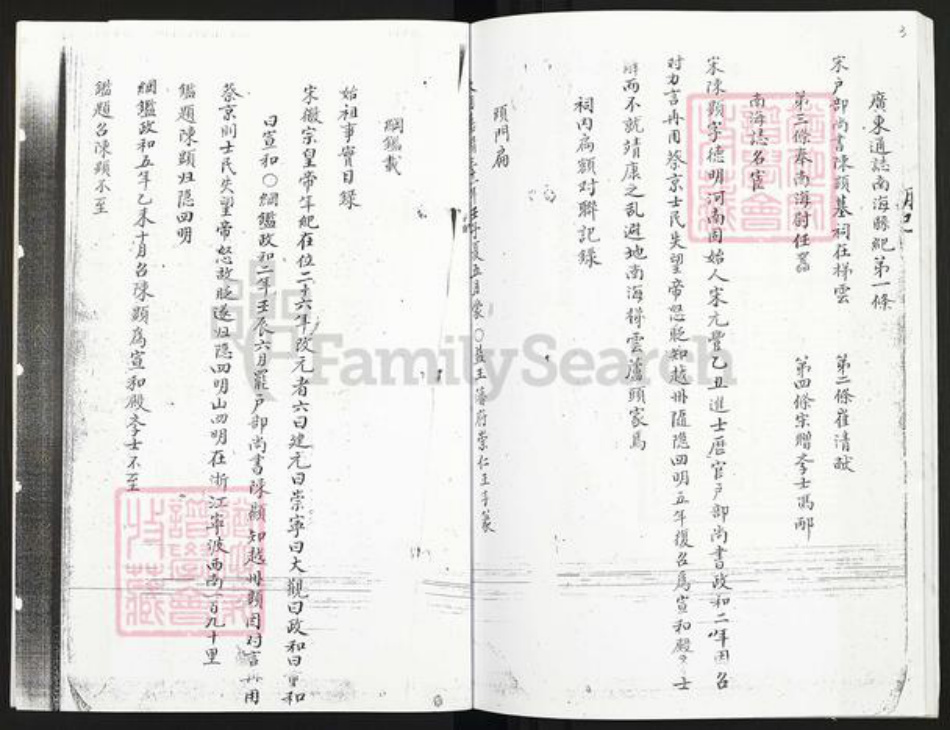 3
廣東通誌南海縣紀第一條
宋户部尚書陳顕墓祠在梯雲 第二條崔清献
第三條秦南海尉任嚣 第四條宋贈斈士馮
南海誌名宦
宋陳顕字德明河南固始人宋元豐乙丑進士歷官户部尚書政和二年因召
对力言再用蔡京士民失望帝怒貶知越州隨隐四明五年復召爲宣和殿斈士
辞而不就靖康之乱避地南海梯雲蘆頭家焉
祠内扁額对聯記錄
頭門扁
五月 〇益王藩府崇仁王
綱鑑載
始祖事實目錄
宋徽宗皇帝年紀在位二十六年改元者六曰建元曰崇寧曰大觀曰政和曰重和
曰宣和〇綱鑑政和二年壬辰六月罷户部尚書陳顯知越州顕因对言再用
蔡京則士民失望帝怒故貶遂归隐四明山四明在浙江寧波西南一百九十里
鑑題陳顕归隐四明
綱鑑政和五年乙未十月召陳顕爲宣和殿斈士不至
鑑題召陳顕不至
FamilySearch